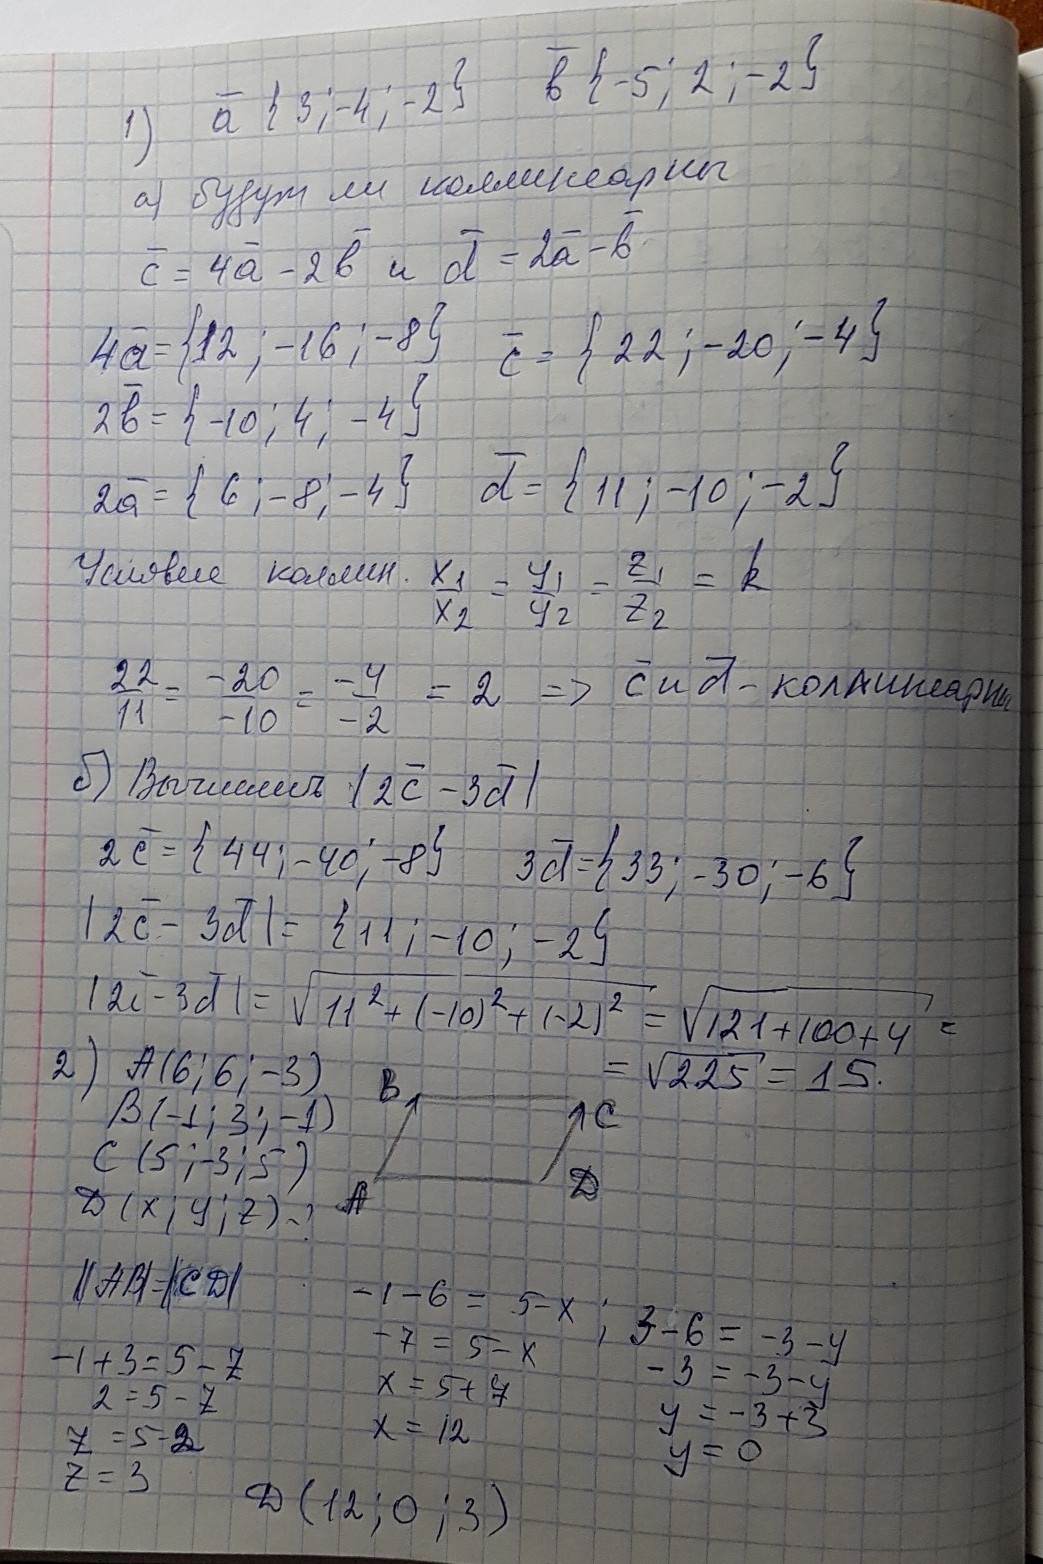 1) a̅ {3; -4; -2} b̅ {-5; 2; -2}
а) будут ли коллинеарны
c̅ = 4a̅ - 2b̅ и d̅ = 2a̅ - b̅
4a̅ = {12; -16; -8} c̅ = {22; -20; -4}
2b̅ = {-10; 4; -4}
2a̅ = {6; -8; -4} d̅ = {11; -10; -2}
Условие коллин. x₁/x₂ = y₁/y₂ = z₁/z₂ = k
22/11 = -20/-10 = -4/-2 = 2 => c̅ и d̅ - коллинеарны
б) Вычислить |2c̅ - 3d̅|
2c̅ = {44; -40; -8} 3d̅ = {33; -30; -6}
|2c̅ - 3d̅| = {11; -10; -2}
|2c̅ - 3d̅| = √(11² + (-10)² + (-2)²) = √(121 + 100 + 4) =
= √225 = 15.
2) A(6; 6; -3)
B(-1; 3; -1)
C(5; -3; 5)
D(x; y; z) - ?
B C
A D
|AB| = |CD|
-1 - 6 = 5 - x; 3 - 6 = -3 - y
-1 + 3 = 5 - z -7 = 5 - x -3 = -3 - y
2 = 5 - z x = 5 + 7 y = -3 + 3
z = 5 - 2 x = 12 y = 0
z = 3
D(12; 0; 3)